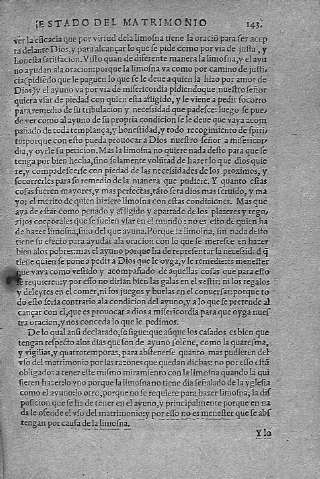 ESTADO DEL MATRIMONIO 143.
ver la eficacia que por virtud dela limosna tiene la oració para ser acep
ta delante Dios, y para alcançar lo que se pide como por via de justa, y
honesta satisfacion. Visto quan de diferente manera la limosna, y el ayu
no ayudan ala oracion: porque la limosna va como por camino de justi-
cia: pidiendo que le paguen lo que se le deue a quien la hizo por amor de
Dios: y el ayuno va por via de misericordia pidiendo que nuestro señor
quiera vsar de piedad con quien esta afligido, y le viene a pedir socorro
para remedio de su tribulacion y necesidad que padesce: luego se pue-
de ver como al ayuno de su propria condicion se le deue que vaya acom
pañado de toda templança, y honestidad, y todo recogimiento de spiri-
tu: porque con esto pueda prouocar a Dios nuestro señor a misericor-
dia, y oyr le su peticion. Mas la limosna no quiere nada desto para que se
tenga por bien hecha, sino solamente voluntad de hazer lo que dios quie
re, y compadescerse con piedad de las necesidades de los proximos, y
socorrerles para su remedio de la manera que pudiere. Y quanto estas
cosas fueren mayores, y mas perfectas, tãto sera dios mas seruido, y ma
yor el merito de quien hiziere limosna con estas condiciones. Mas que
aya de estar como penado y afligido y apartado de los plazeres y rego-
zijos corporales que se suelen vsar en el mundo: no es esto de quien ha
de hazer limosna, sino del que ayuna. Porque la limosna, sin nada desto
tiene su efecto para ayudar ala oracion con lo que se meresce en hazer
bien alos pobres: mas el ayuno porque ha de representar la necesidad q̃
tiene quien se pone a pedir a Dios que le oyga, y le remedie: es menester
que vaya como vestido y acompañado de aquellas cosas que para esto
se requieren: y por esto no dizian bien las galas en el vestir, ni los regalos
y deleytes en el comer, ni los juegos y burlas en el conuersar: porque to
do esto seria contrario ala condicion del ayuno, y a lo que se pretende al
cançar con el, que es prouocar a dios a misericordia para que oyga nues
tra oracion, y nos conceda lo que le pedimos.
De lo qual ansi declarado, se sigue: que aũque los casados es bien que
tengan respecto alos dias que son de ayuno solene, como la quaresma,
y vigilias, y quatro temporas, para abstenerse quanto mas pudieren del
vso del matrimonio por las razones que quedan dichas: no por esso estã
obligados a tener este mismo miramiento con la limosna quando la qui
sieren hazer: lo vno porque la limosna no tiene dia señalado de la yglesia
como el ayuno: lo otro, porque no se requiere para hazer limosna, la dis
posicion que se ha de tener en el ayuno, y principalmente porque en na
da le ofende el vso del matrimonio: y por esso no es menester que se abs
tengan por causa de la limosna.
Y lo